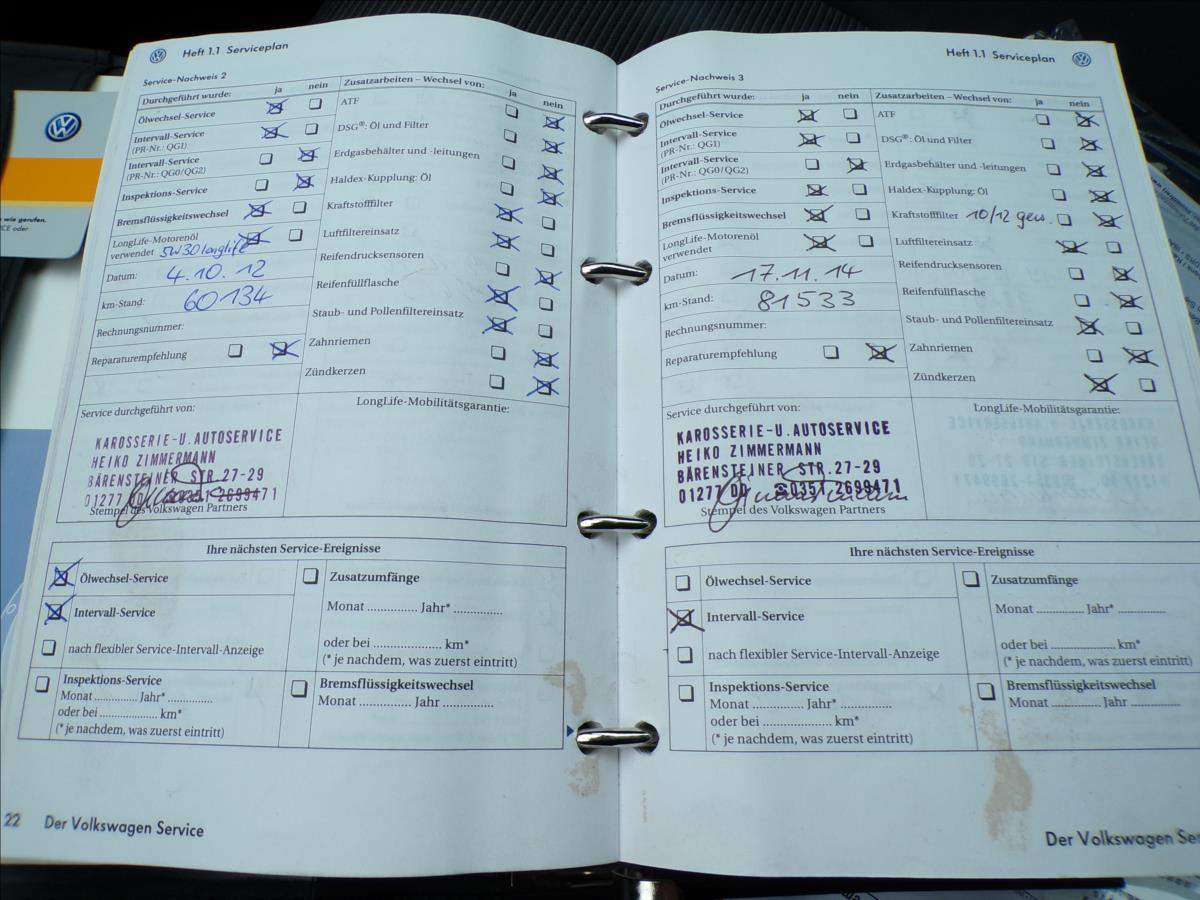 Heft 1.1 Serviceplan
Service-Nachweis 2
Durchgeführt wurde: ja nein
Ölwechsel-Service
Intervall-Service
(PR-Nr.: QG1)
Intervall-Service
(PR-Nr.: QG0/QG2)
Inspektions-Service
Bremsflüssigkeitswechsel
LongLife-Motorenöl
verwendet 5W30 longlife
Datum: 4.10.12
km-Stand: 60134
Rechnungsnummer:
Reparaturempfehlung
Zusatzarbeiten – Wechsel von: ja nein
ATF
DSG®: Öl und Filter
Erdgasbehälter und -leitungen
Haldex-Kupplung: Öl
Kraftstofffilter
Luftfiltereinsatz
Reifendrucksensoren
Reifenfüllflasche
Staub- und Pollenfiltereinsatz
Zahnriemen
Zündkerzen
Service durchgeführt von:
KAROSSERIE-U.AUTOSERVICE
HEIKO ZIMMERMANN
BÄRENSTEINER STR.27-29
01277 DD ☎0351 2699471
Stempel des Volkswagen Partners
LongLife-Mobilitätsgarantie:
Ihre nächsten Service-Ereignisse
Ölwechsel-Service
Intervall-Service
nach flexibler Service-Intervall-Anzeige
Inspektions-Service
Monat ............. Jahr* .............
oder bei ................. km*
(* je nachdem, was zuerst eintritt)
Zusatzumfänge
Monat .............. Jahr* .............
oder bei .................... km*
(* je nachdem, was zuerst eintritt)
Bremsflüssigkeitswechsel
Monat ............... Jahr ...............
22 Der Volkswagen Service
Heft 1.1 Serviceplan
Service-Nachweis 3
Durchgeführt wurde: ja nein
Ölwechsel-Service
Intervall-Service
(PR-Nr.: QG1)
Intervall-Service
(PR-Nr.: QG0/QG2)
Inspektions-Service
Bremsflüssigkeitswechsel
LongLife-Motorenöl
verwendet
Datum: 17.11.14
km-Stand: 81533
Rechnungsnummer:
Reparaturempfehlung
Zusatzarbeiten – Wechsel von: ja nein
ATF
DSG®: Öl und Filter
Erdgasbehälter und -leitungen
Haldex-Kupplung: Öl
Kraftstofffilter 10/12 gew.
Luftfiltereinsatz
Reifendrucksensoren
Reifenfüllflasche
Staub- und Pollenfiltereinsatz
Zahnriemen
Zündkerzen
Service durchgeführt von:
KAROSSERIE-U.AUTOSERVICE
HEIKO ZIMMERMANN
BÄRENSTEINER STR.27-29
01277 DD ☎0351 2699471
Stempel des Volkswagen Partners
LongLife-Mobilitätsgarantie:
Ihre nächsten Service-Ereignisse
Ölwechsel-Service
Intervall-Service
nach flexibler Service-Intervall-Anzeige
Inspektions-Service
Monat ............. Jahr* ...............
oder bei .................... km*
(* je nachdem, was zuerst eintritt)
Zusatzumfänge
Monat .............. Jahr* .............
oder bei .................... km*
(* je nachdem, was zuerst eintritt)
Bremsflüssigkeitswechsel
Monat ............... Jahr ...............
Der Volkswagen Se
wie gerufen.
CE oder